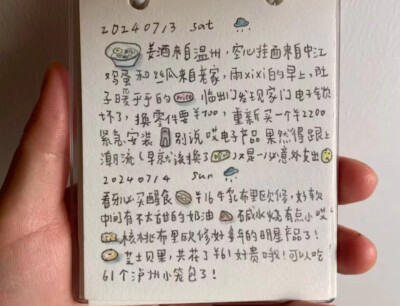 20240713 sat
姜酒来自温州,空心挂面来自中江
鸡蛋和丝瓜来自老家,雨xixi的早上,肚
子暖乎乎的 nice 临出门发现家门电子锁
坏了,换零件要¥700,重新买一个¥2200
紧急安装 别说哎电子产品果然得跟上
潮流(早就该换了)又是一必意外支出
20240714 sun
看牙必买醒食 ¥16牛乳布里欧修,好软
中间有不太甜的奶油 碱水烧有点小哎
核桃布里欧修好多年的明星产品了!
芝士贝果,共花了¥61好贵哦!可以吃
61个泸州小笼包了!